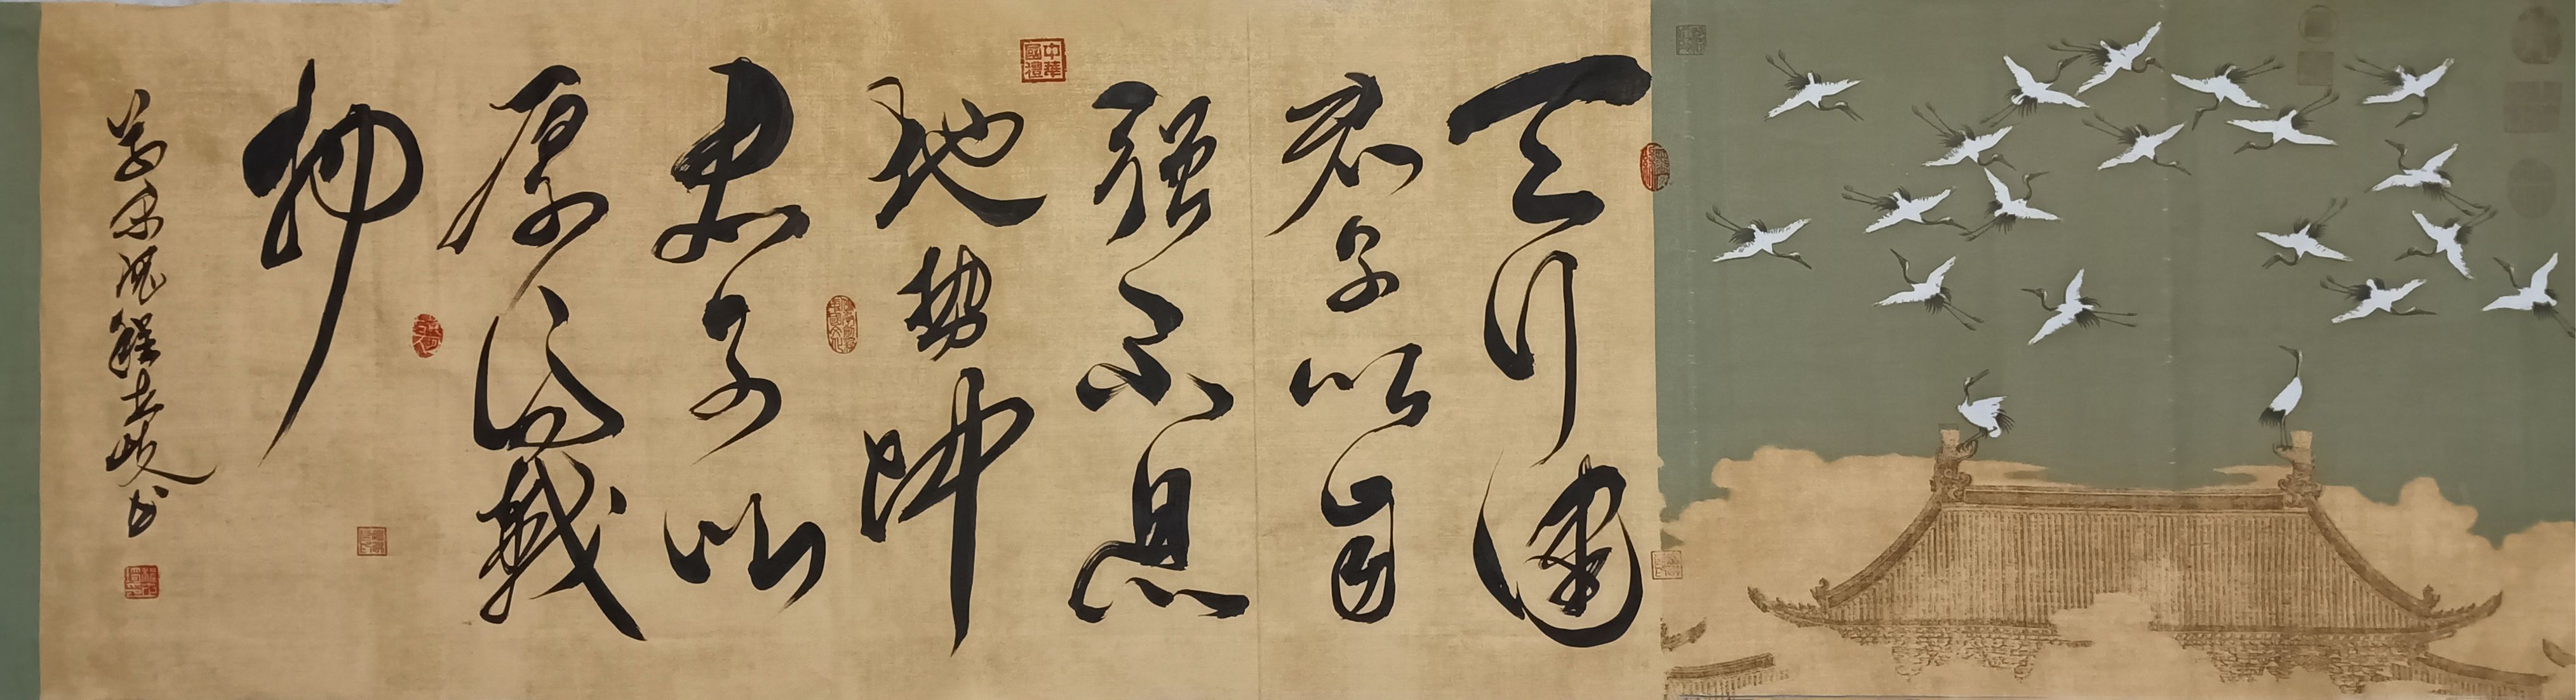 天行健
君子以自
强不息
地势坤
君子以
厚德载
物